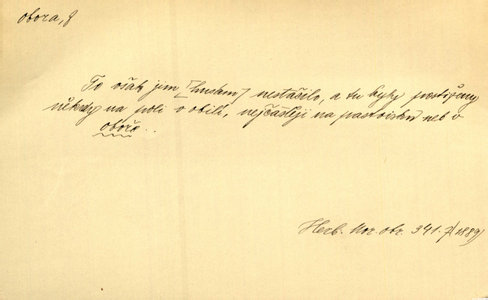 obora, f
To však jim [husám] nestačilo, a tu byly postiženy
někdy na poli v obilí, nejčastěji na pastvisku neb v
oboře..
Herb. Mor. obr. 341. /(1889)